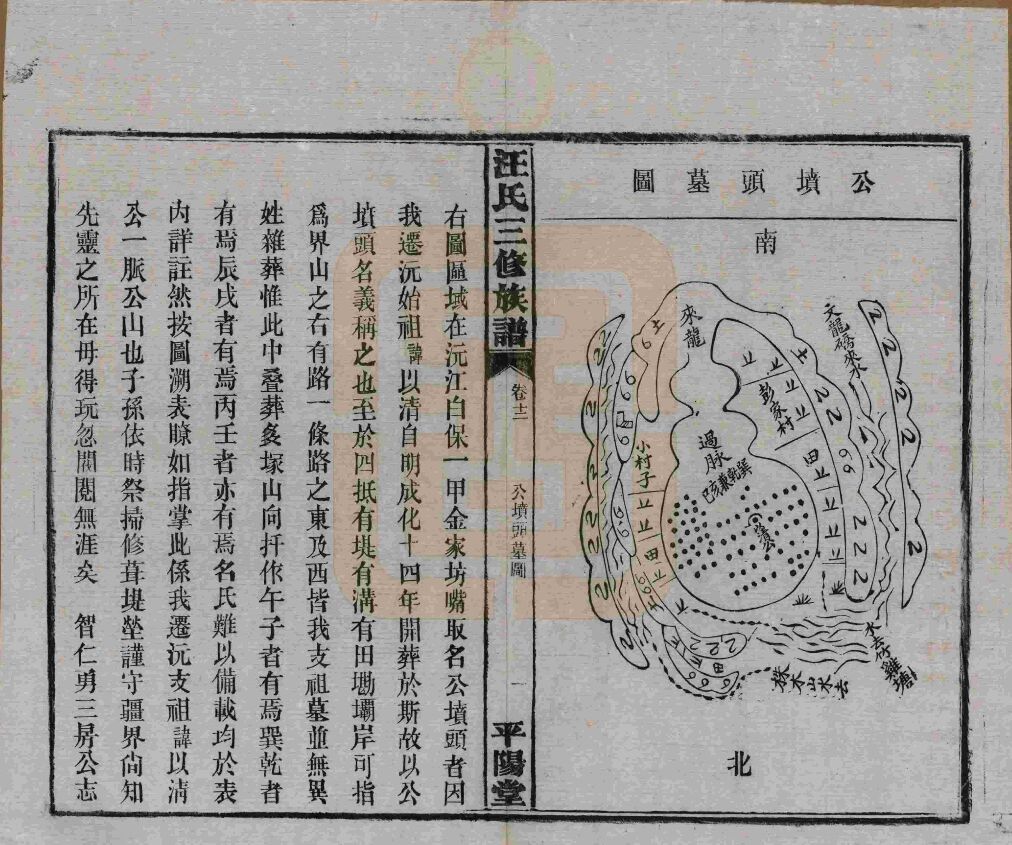 公墳頭墓圖
南
文龍碼來水
來龍
土
彭家村
小村子
田
過脉
巽乾兼亥巳
清公
田
田
水去竹雞塘
北
汪氏三修族譜
卷十二
公墳頭墓圖
一
平陽堂
右圖區域在沅江白保一甲金家坊嘴取名公墳頭者因
我遷沅始祖諱以清自明成化十四年開葬於斯故以公
墳頭名義稱之也至於四抵有堤有溝有田墈壩岸可指
爲界山之右有路一條路之東及西皆我支祖墓並無異
姓雜葬惟此中叠葬多塚山向扦作午子者有焉巽乾者
有焉辰戌者有焉丙壬者亦有焉名氏難以備載均於表
內詳註然按圖溯表瞭如指掌此係我遷沅支祖諱以清
公一脈公山也子孫依時祭掃修葺堤塋謹守疆界尙知
先靈之所在毋得玩忽閱閱無涯矣　智仁勇三房公志